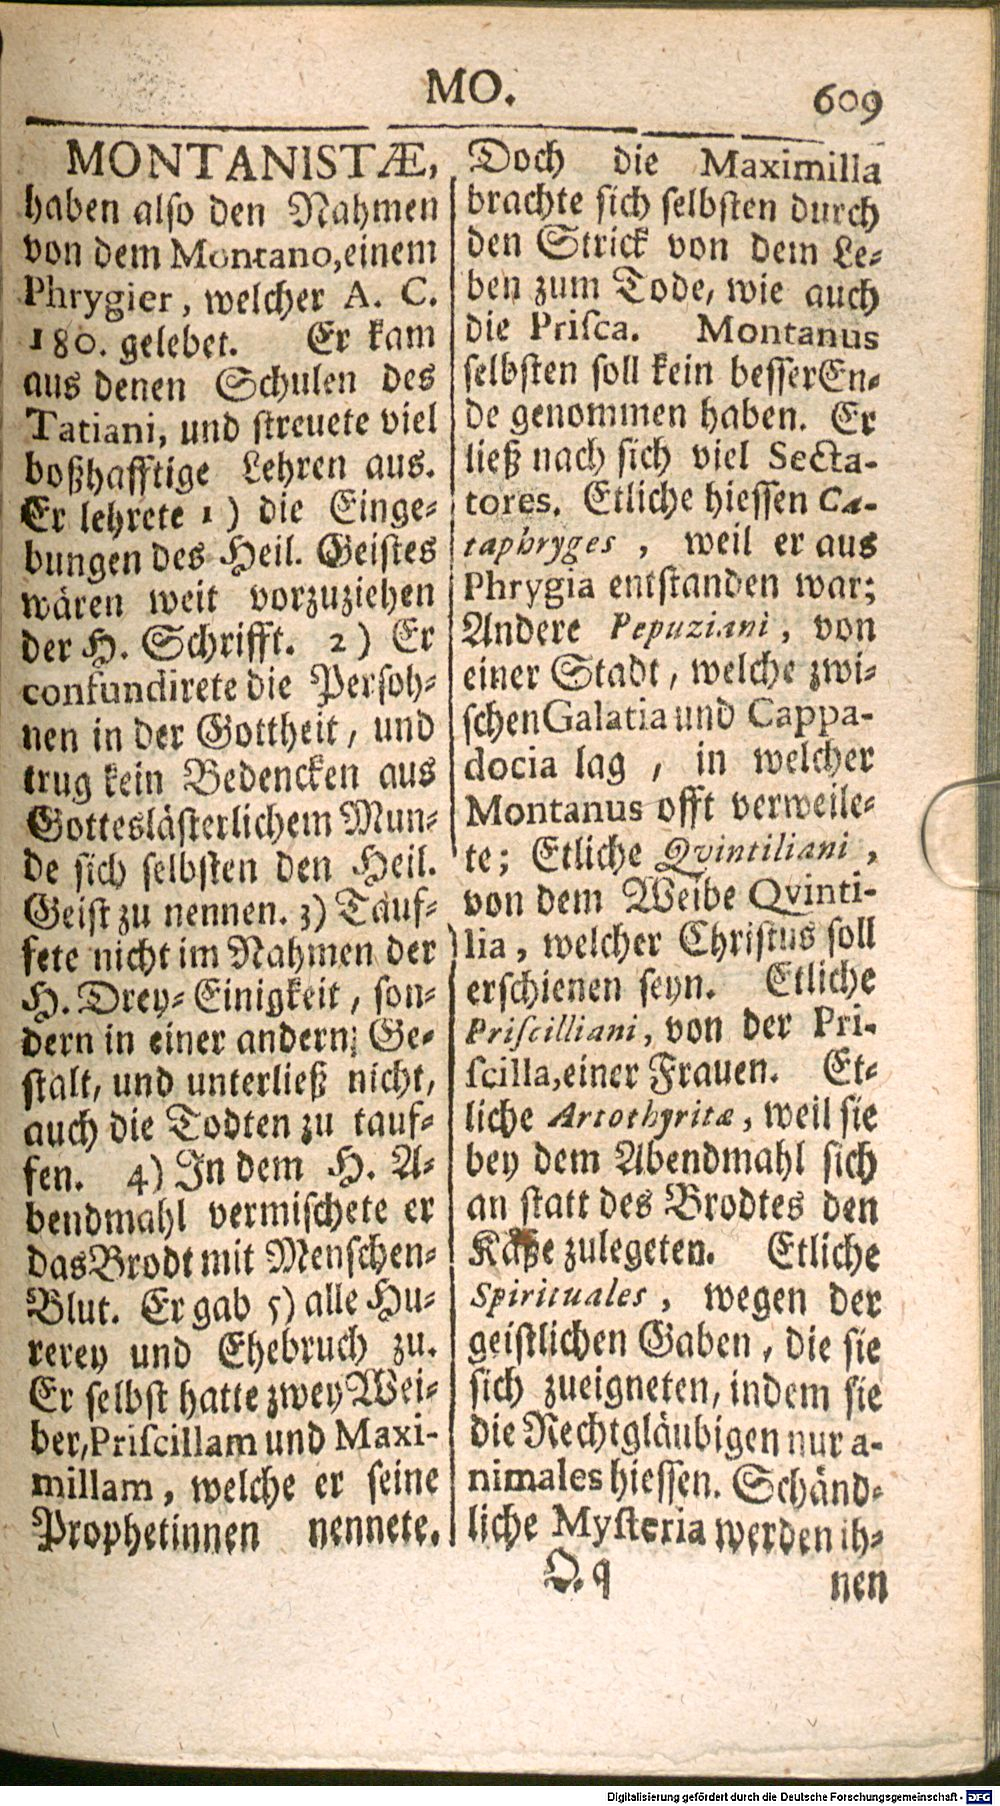 MO.
609
MONTANISTÆ,
haben also den Nahmen
von dem Montano, einem
Phrygier, welcher A. C.
180. gelebet. Er kam
aus denen Schulen des
Tatiani, und streuete viel
boßhafftige Lehren aus.
Er lehrete 1) die Einge-
bungen des Heil. Geistes
wären weit vorzuziehen
der H. Schrifft. 2) Er
confundirete die Persoh-
nen in der Gottheit, und
trug kein Bedencken aus
Gotteslästerlichem Mun-
de sich selbsten den Heil.
Geist zu nennen. 3) Tauf-
fete nicht im Nahmen der
H. Drey-Einigkeit, son-
dern in einer andern; Ge-
stalt, und unterließ nicht,
auch die Todten zu tauf-
fen. 4) In dem H. A-
bendmahl vermischete er
das Brodt mit Menschen-
Blut. Er gab 5) alle Hu-
rerey und Ehebruch zu.
Er selbst hatte zwey Wei-
ber, Priscillam und Maxi-
millam, welche er seine
Prophetinnen nennete.
Doch die Maximilla
brachte sich selbsten durch
den Strick von dem Le-
ben zum Tode, wie auch
die Prisca. Montanus
selbsten soll kein besser En-
de genommen haben. Er
ließ nach sich viel Secta-
tores. Etliche hiessen Ca-
taphryges, weil er aus
Phrygia entstanden war;
Andere Pepuziani, von
einer Stadt, welche zwi-
schen Galatia und Cappa-
docia lag, in welcher
Montanus offt verweile-
te; Etliche Qvintiliani,
von dem Weibe Qvinti-
lia, welcher Christus soll
erschienen seyn. Etliche
Priscilliani, von der Pri-
scilla, einer Frauen. Et-
liche Artothyritæ, weil sie
bey dem Abendmahl sich
an statt des Brodtes den
Käße zulegeten. Etliche
Spirituales, wegen der
geistlichen Gaben, die sie
sich zueigneten, indem sie
die Rechtgläubigen nur a-
nimales hiessen. Schänd-
liche Mysteria werden ih-
Q q
nen
Digitalisierung gefördert durch die Deutsche Forschungsgemeinschaft - DFG